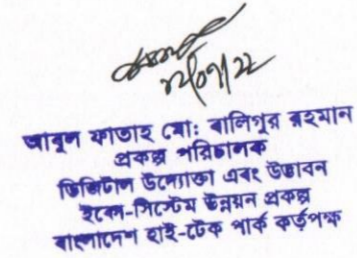 ১২/০৭/২২
আবুল ফাতাহ মো: বালিগুর রহমান
প্রকল্প পরিচালক
ডিজিটাল উদ্যোক্তা এবং উদ্ভাবন
ইকো-সিস্টেম উন্নয়ন প্রকল্প
বাংলাদেশ হাই-টেক পার্ক কর্তৃপক্ষ